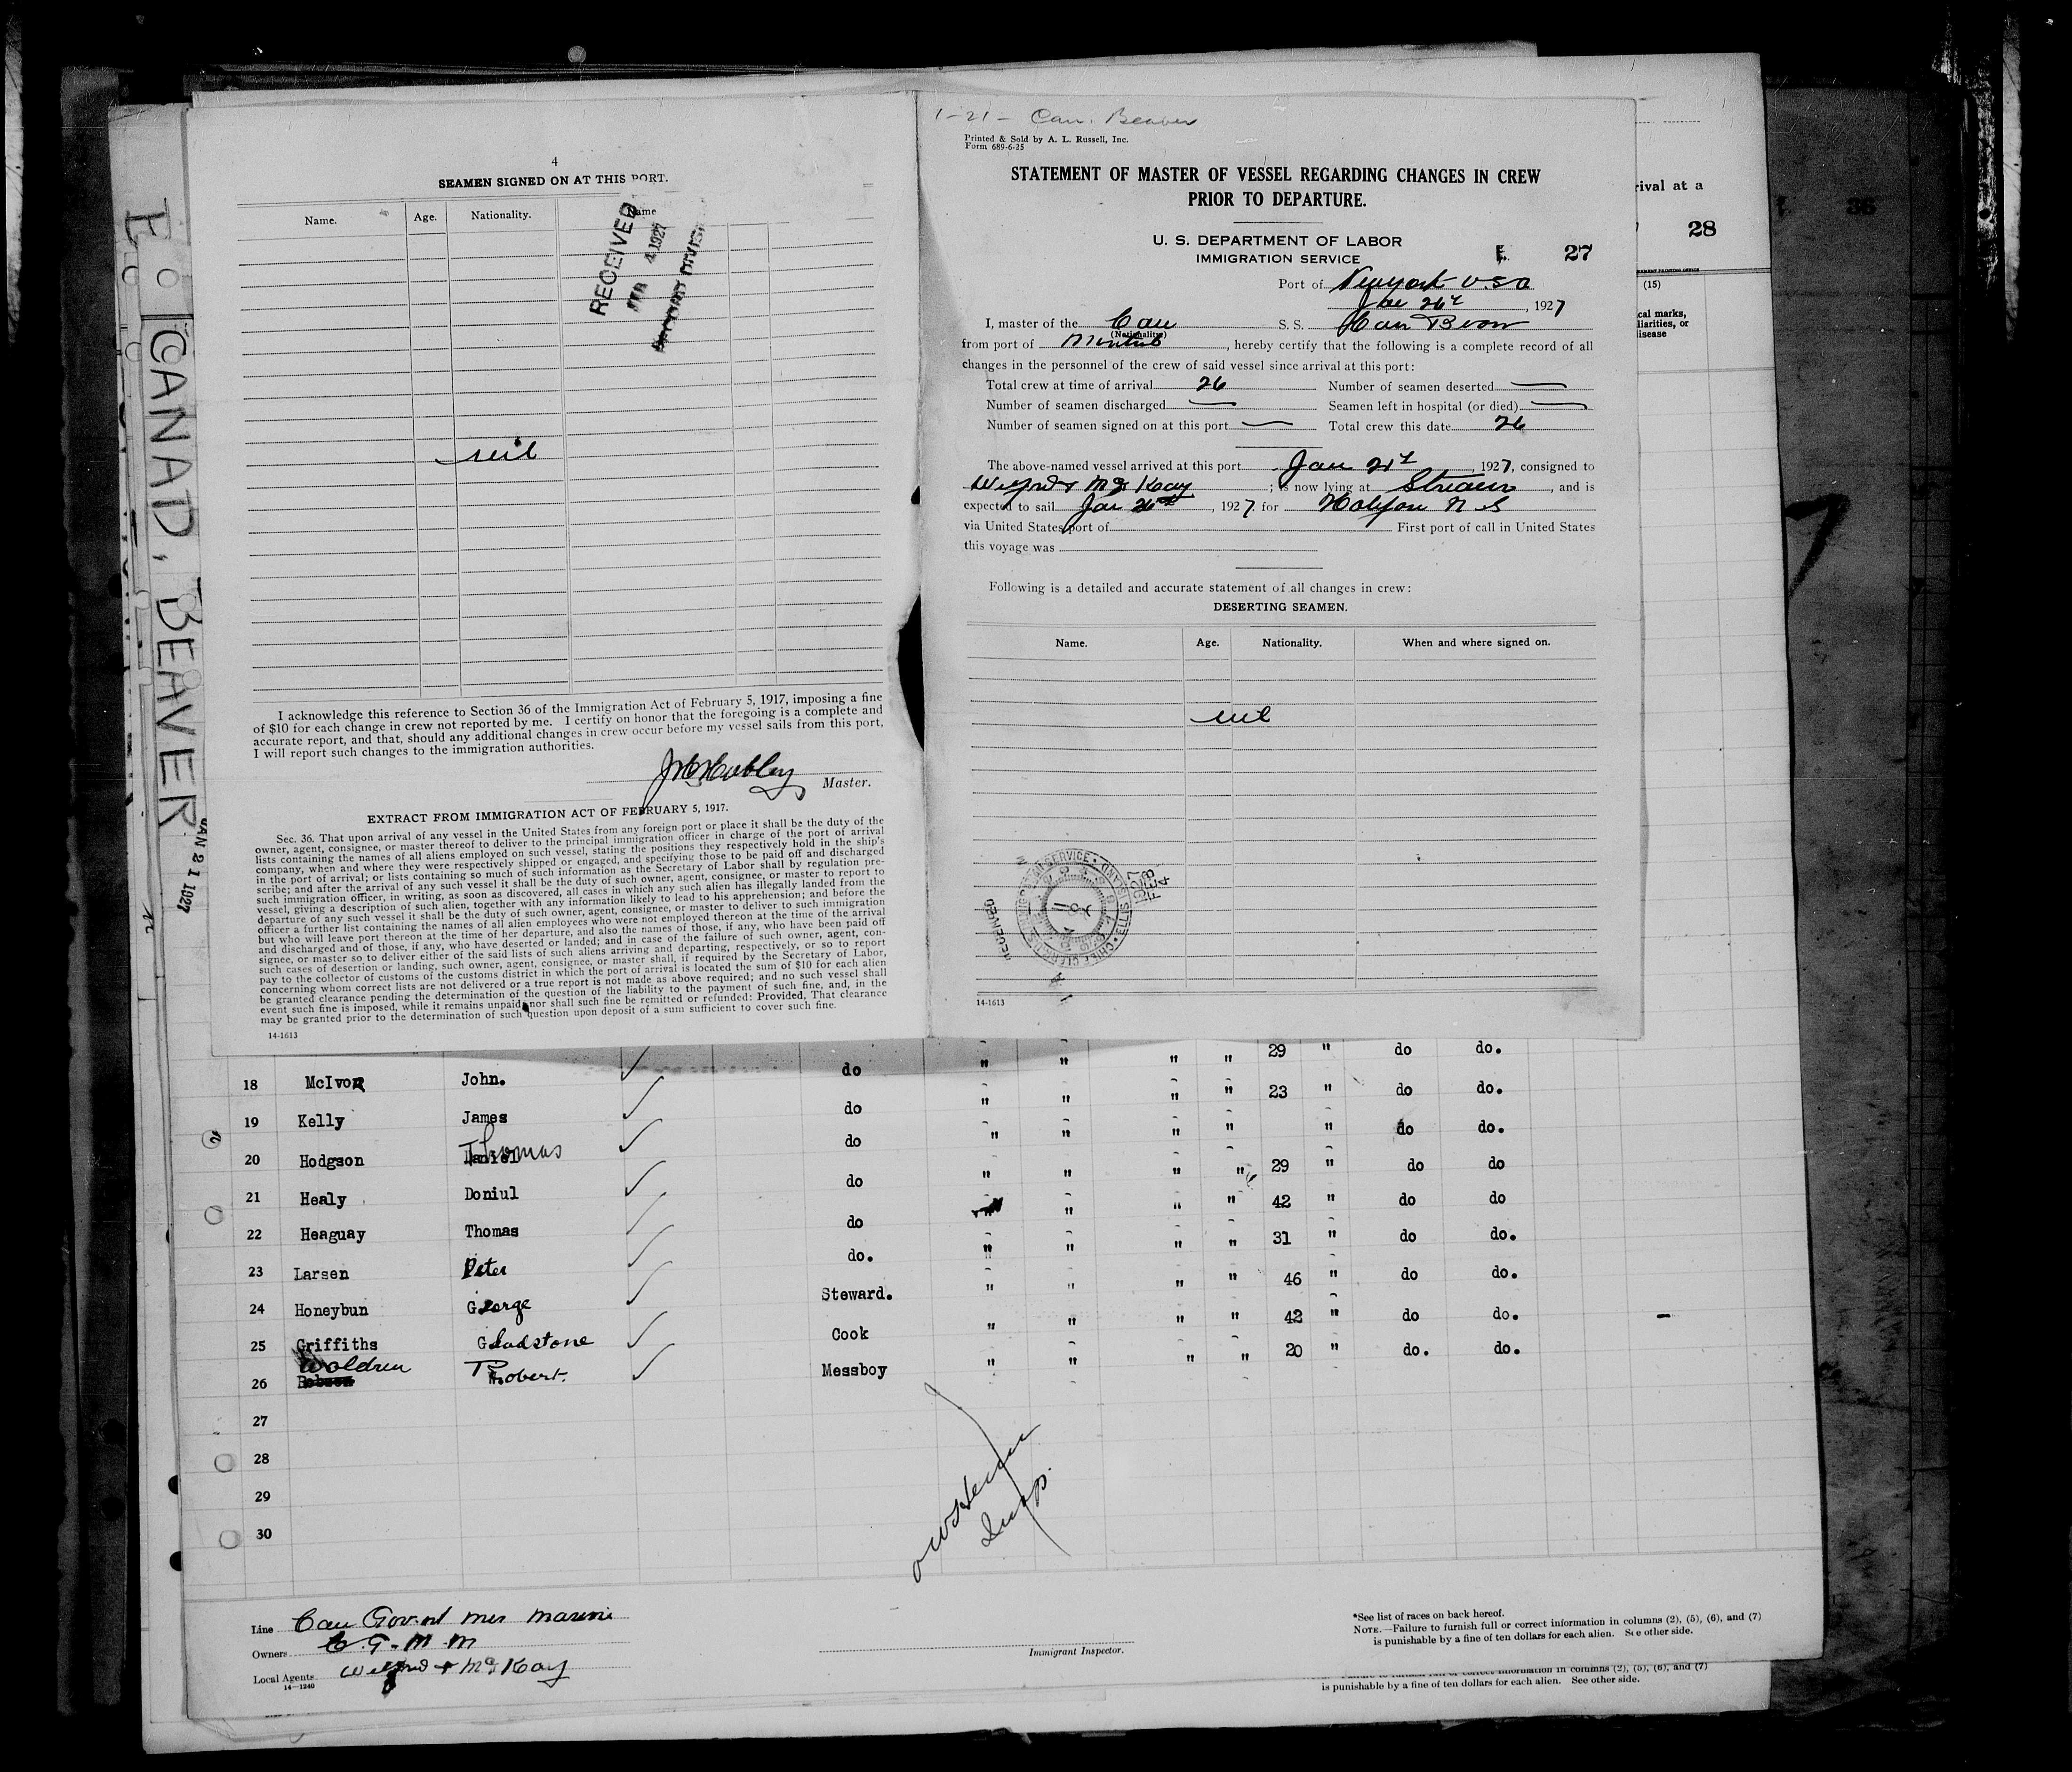 CANAD, BEAVER
JAN 21 1927
4
SEAMEN SIGNED ON AT THIS PORT.
Name. Age. Nationality. Name
RECEIVED
FEB 4 1927
nil
I acknowledge this reference to Section 36 of the Immigration Act of February 5, 1917, imposing a fine
of $10 for each change in crew not reported by me. I certify on honor that the foregoing is a complete and
accurate report, and that, should any additional changes in crew occur before my vessel sails from this port,
I will report such changes to the immigration authorities.
Master.
EXTRACT FROM IMMIGRATION ACT OF FEBRUARY 5, 1917.
Sec. 36. That upon arrival of any vessel in the United States from any foreign port or place it shall be the duty of the
owner, agent, consignee, or master thereof to deliver to the principal immigration officer in charge of the port of arrival
lists containing the names of all aliens employed on such vessel, stating the positions they respectively hold in the ship's
company, when and where they were respectively shipped or engaged, and specifying those to be paid off and discharged
in the port of arrival; or lists containing so much of such information as the Secretary of Labor shall by regulation pre-
scribe; and after the arrival of any such vessel it shall be the duty of such owner, agent, consignee, or master to report to
such immigration officer, in writing, as soon as discovered, all cases in which any such alien has illegally landed from the
vessel, giving a description of such alien, together with any information likely to lead to his apprehension; and before the
departure of any such vessel it shall be the duty of such owner, agent, consignee, or master to deliver to such immigration
officer a further list containing the names of all alien employees who were not employed thereon at the time of the arrival
but who will leave port thereon at the time of her departure, and also the names of those, if any, who have been paid off
and discharged and of those, if any, who have deserted or landed; and in case of the failure of such owner, agent, con-
signee, or master so to deliver either of the said lists of such aliens arriving and departing, respectively, or so to report
such cases of desertion or landing, such owner, agent, consignee, or master shall, if required by the Secretary of Labor,
pay to the collector of customs of the customs district in which the port of arrival is located the sum of $10 for each alien
concerning whom correct lists are not delivered or a true report is not made as above required; and no such vessel shall
be granted clearance pending the determination of the question of the liability to the payment of such fine, and, in the
event such fine is imposed, while it remains unpaid, nor shall such fine be remitted or refunded: Provided, That clearance
may be granted prior to the determination of such question upon deposit of a sum sufficient to cover such fine.
14-1613
1-21- Can. Beaver
Printed & Sold by A. L. Russell, Inc.
Form 689-6-25
STATEMENT OF MASTER OF VESSEL REGARDING CHANGES IN CREW
PRIOR TO DEPARTURE.
U. S. DEPARTMENT OF LABOR
IMMIGRATION SERVICE
27
Port of Newyork U.S.A
Jan 26th, 1927
I, master of the Can S. S. Can Beaver
(Nationality)
from port of , hereby certify that the following is a complete record of all
changes in the personnel of the crew of said vessel since arrival at this port:
Total crew at time of arrival 26 Number of seamen deserted —
Number of seamen discharged — Seamen left in hospital (or died) —
Number of seamen signed on at this port — Total crew this date 26
The above-named vessel arrived at this port Jan 21st, 1927, consigned to
& McKay; is now lying at Stream, and is
expected to sail Jan 26th, 1927 for Halifax N S
via United States port of First port of call in United States
this voyage was
Following is a detailed and accurate statement of all changes in crew:
DESERTING SEAMEN.
Name. Age. Nationality. When and where signed on.
nil
RECEIVED
CHIEF CLERK U.S. IMMIGRATION SERVICE • ELLIS ISLAND
1927 FEB 4
14-1613
rival at a
28
36
(15)
cal marks,
liarities, or
disease
29 " do do.
18 McIvor John. do " " " " 23 " do do.
19 Kelly James do " " " " " do do.
20 Hodgson Thomas do " " " " 29 " do do
21 Healy Doniul do " " " " 42 " do do
22 Heaguay Thomas do " " " " 31 " do do.
23 Larsen Peter do. " " " " 46 " do do.
24 Honeybun George Steward. " " " " 42 " do do.
25 Griffiths Gladstone Cook " " " " 20 " do. do.
26 Woldren Robert. Messboy " " " "
27
28
29
30
Insp.
Line Can Gov.nt mer marine
Owners C. G. M. M
Local Agents & McKay
14—1240
Immigrant Inspector.
*See list of races on back hereof.
NOTE.—Failure to furnish full or correct information in columns (2), (5), (6), and (7)
is punishable by a fine of ten dollars for each alien. See other side.
information in columns (2), (5), (6), and (7)
is punishable by a fine of ten dollars for each alien. See other side.